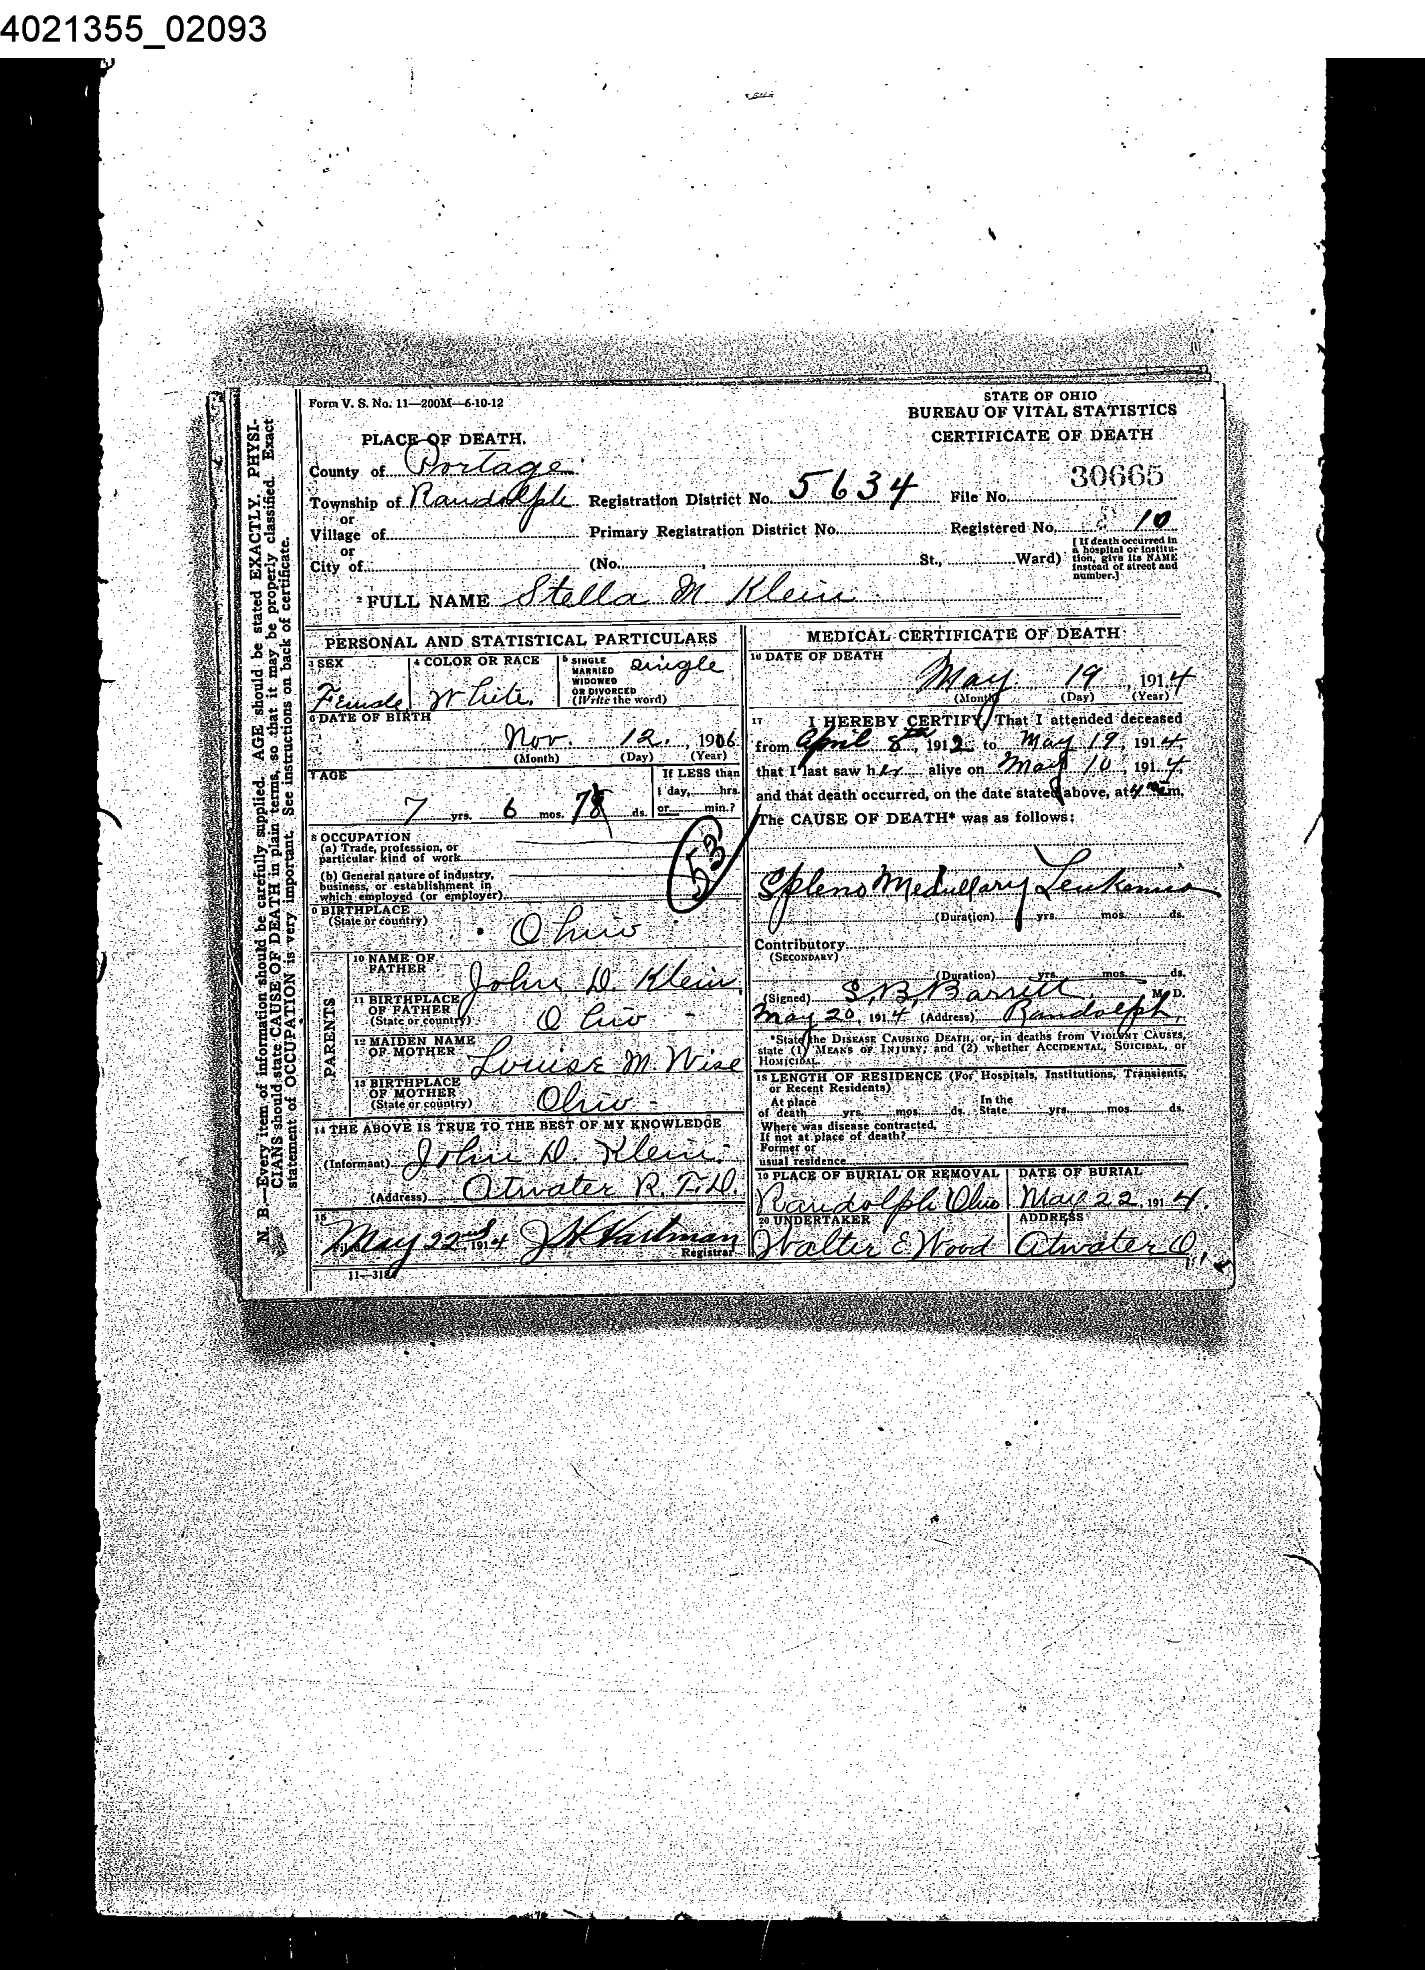 4021355_02093
Form V. S. No. 11—200M—6-10-12
STATE OF OHIO
BUREAU OF VITAL STATISTICS
CERTIFICATE OF DEATH
PLACE OF DEATH.
County of Portage
30665
Township of Randolph Registration District No. 5634 File No.
or
Village of Primary Registration District No. Registered No. 10
or
City of (No. , St., Ward)
[If death occurred in
a hospital or institu-
tion, give its NAME
instead of street and
number.]
2 FULL NAME Stella M Klein
PERSONAL AND STATISTICAL PARTICULARS
3 SEX
Female
4 COLOR OR RACE
White.
5 SINGLE
MARRIED
WIDOWED
OR DIVORCED
(Write the word)
single
6 DATE OF BIRTH
Nov. 12. , 1906
(Month) (Day) (Year)
7 AGE
If LESS than
1 day, hrs.
or min.?
7 yrs. 6 mos. 7 ds.
53
8 OCCUPATION
(a) Trade, profession, or
particular kind of work
(b) General nature of industry,
business, or establishment in
which employed (or employer)
9 BIRTHPLACE
(State or country)
Ohio
PARENTS
10 NAME OF
FATHER
John D. Klein
11 BIRTHPLACE
OF FATHER
(State or country)
Ohio -
12 MAIDEN NAME
OF MOTHER
Louise M. Wise
13 BIRTHPLACE
OF MOTHER
(State or country)
Ohio -
14 THE ABOVE IS TRUE TO THE BEST OF MY KNOWLEDGE
(Informant) John D. Klein.
(Address) Atwater R.F.D.
15
Filed May 22nd, 1914 J H Hartman
Registrar
11—3184
MEDICAL CERTIFICATE OF DEATH
16 DATE OF DEATH
May 19 , 1914
(Month) (Day) (Year)
17 I HEREBY CERTIFY, That I attended deceased
from April 8th, 1912, to May 19, 1914,
that I last saw her alive on May 10, 1914,
and that death occurred, on the date stated above, at 4 m.
The CAUSE OF DEATH* was as follows:
Spleno Medullary Leukemia
(Duration) yrs. mos. ds.
Contributory
(SECONDARY)
(Duration) yrs. mos. ds.
(Signed) S. B. Barrett M. D.
May 20, 1914 (Address) Randolph,
*State the DISEASE CAUSING DEATH, or, in deaths from VIOLENT CAUSES,
state (1) MEANS OF INJURY; and (2) whether ACCIDENTAL, SUICIDAL, or
HOMICIDAL.
18 LENGTH OF RESIDENCE (For Hospitals, Institutions, Transients,
or Recent Residents)
At place In the
of death yrs. mos. ds. State yrs. mos. ds.
Where was disease contracted,
If not at place of death?
Former or
usual residence
19 PLACE OF BURIAL OR REMOVAL
Randolph Ohio
DATE OF BURIAL
May 22, 1914.
20 UNDERTAKER
Walter E Wood
ADDRESS
Atwater O.
N. B.—Every item of information should be carefully supplied. AGE should be stated EXACTLY. PHYSI-
CIANS should state CAUSE OF DEATH in plain terms, so that it may be properly classified. Exact
statement of OCCUPATION is very important. See instructions on back of certificate.